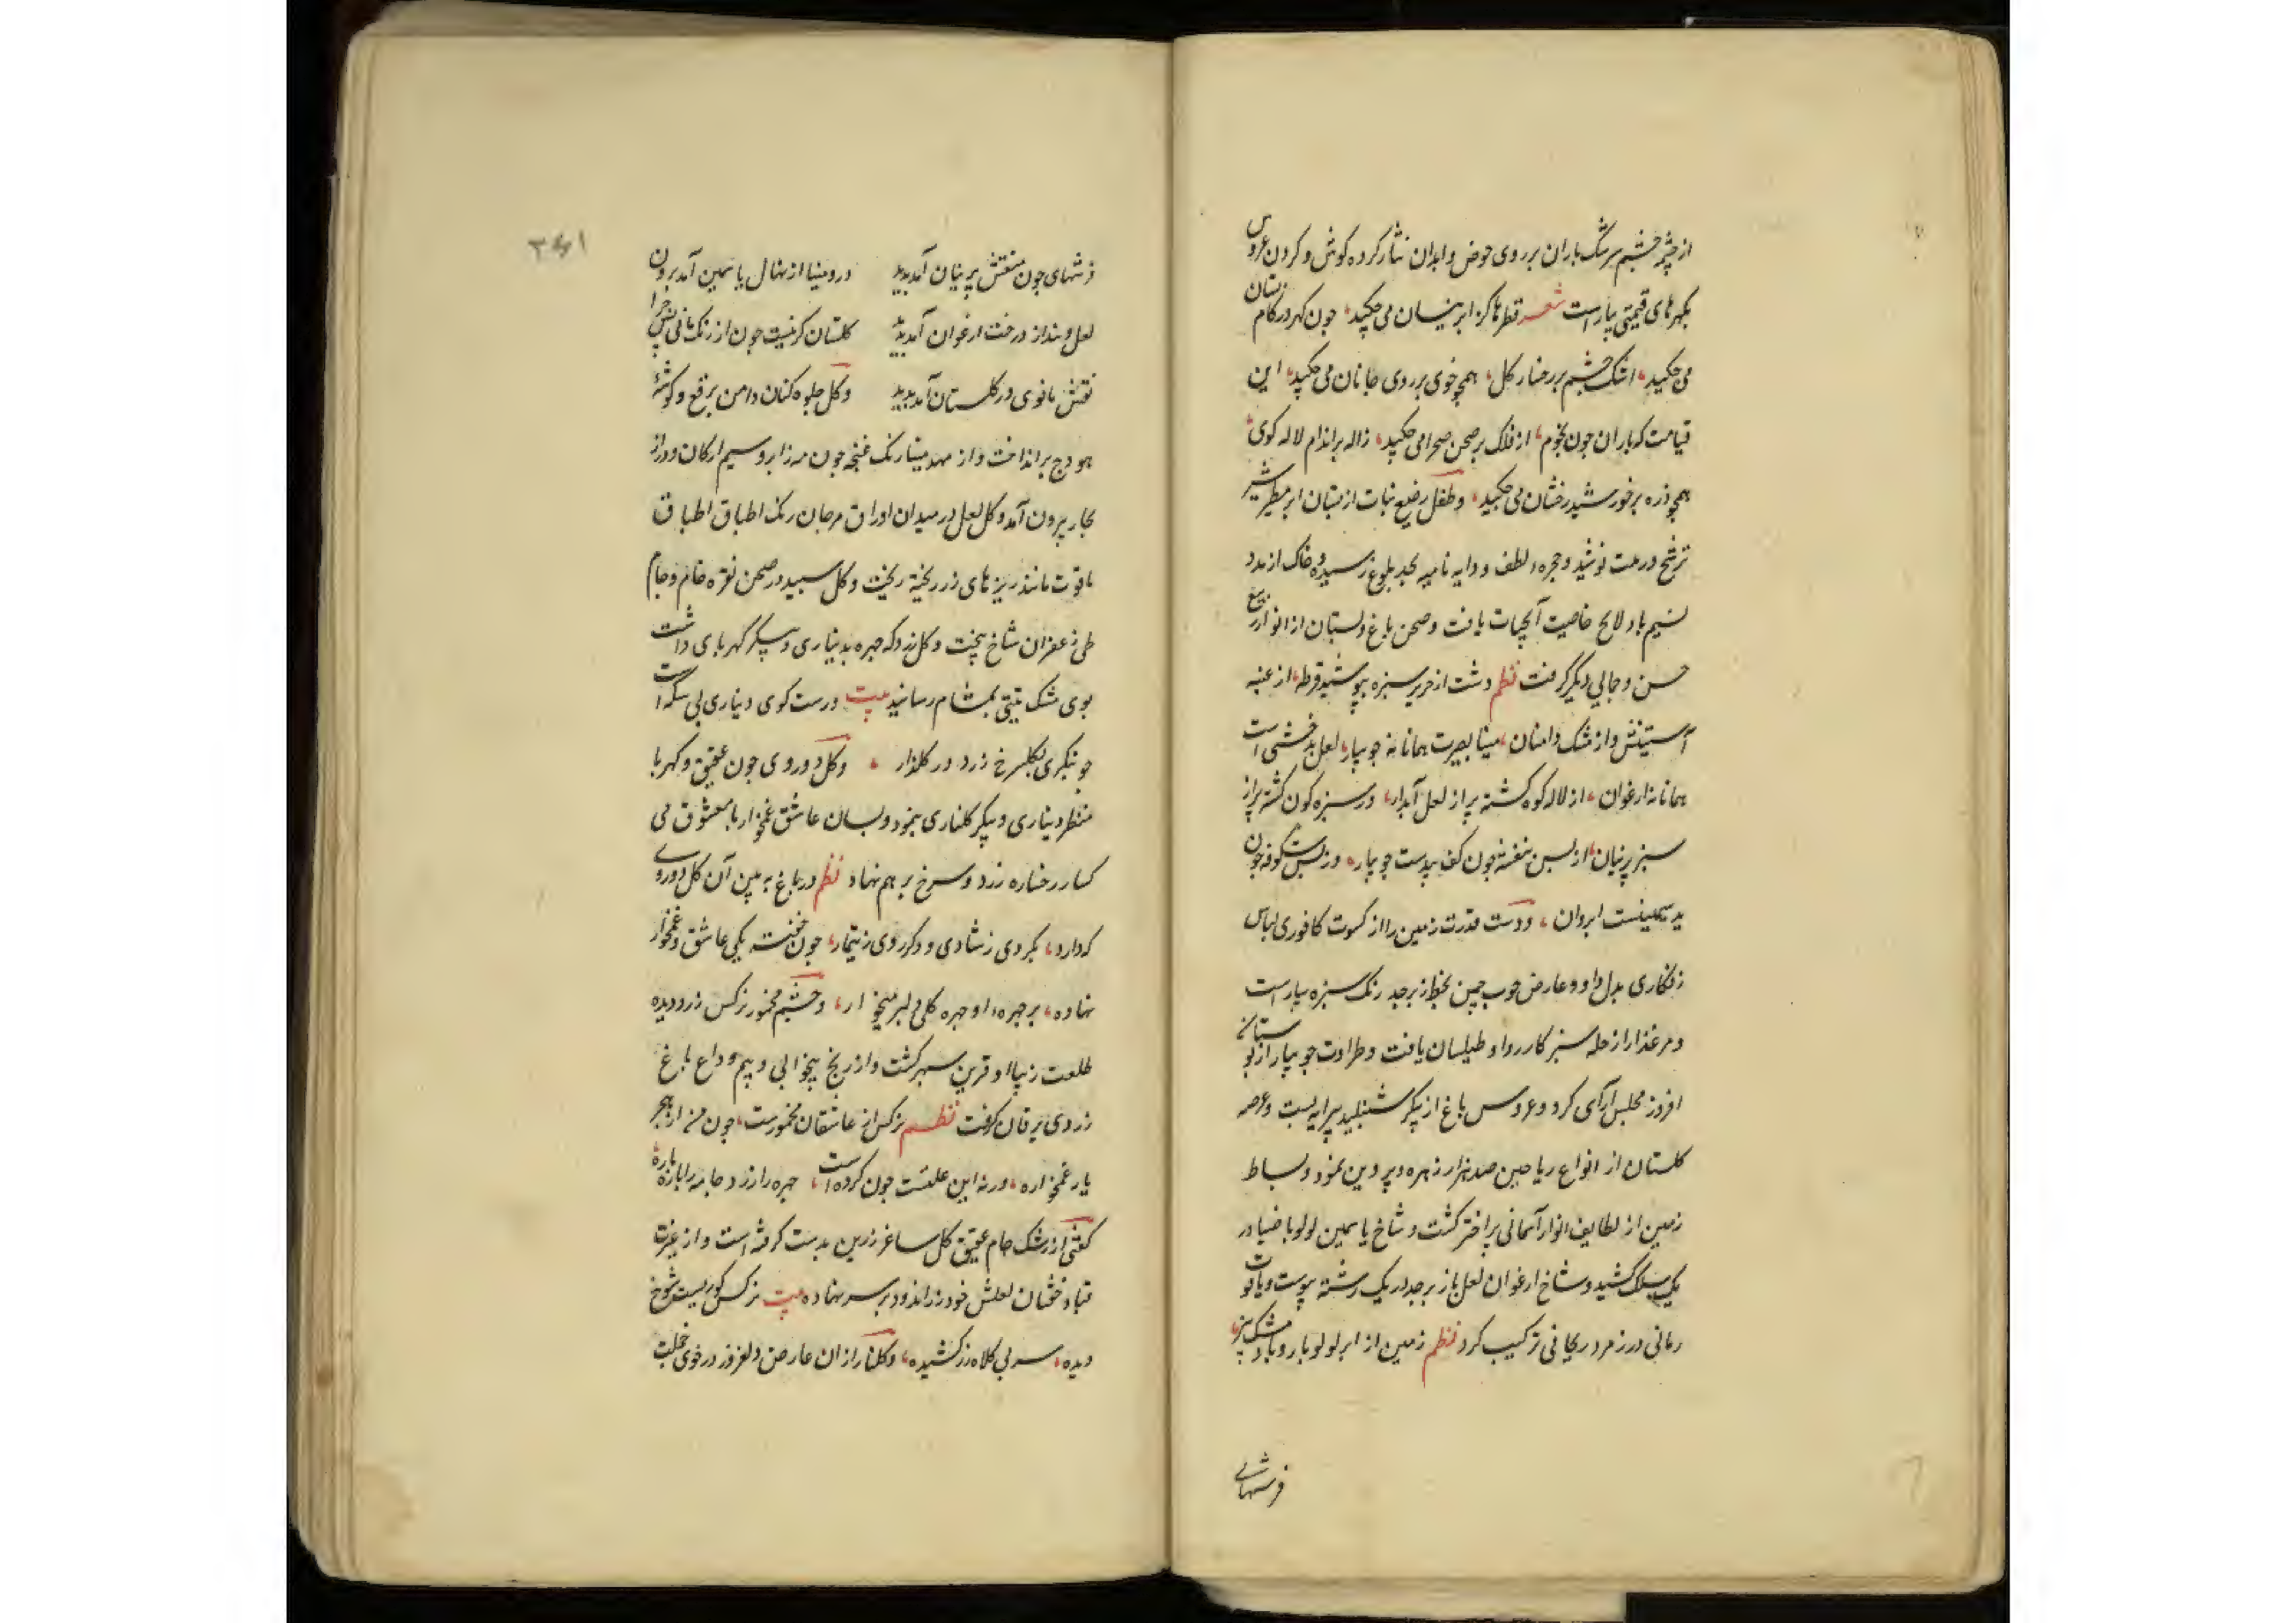 از چشم سرشک باران بر روی حوض و ابدان نثار کرده کوش و کردن عروس
بکهرهای قیمتی بیاراست شعر قطرها کز ابر نیسان می چکید، جون کهر در کام
می چکید، اشک چشم بر رخسار کل، همچو خوی بر روی جانان می چکید، این
قیامت که باران جون نجوم، از فلک بر صحن صحرا می چکید، ژاله بر اندام لاله کوی
همچو ذره بر خورشید رخشان می چکید، و طفل رضیع نبات از بستان ابر مطر شیر
ترشح در مدت نوشید و حجره لطف و دایه نامیه بحد بلوغ رسید و خاک از مدد
نسیم باد لایح خاصیت آبحیات یافت و صحن باغ و بستان از انوار ربیع
حسن و جمالی دیکر کرفت نظم دشت از حریر سبزه بپوشید قرطه، از عنبر
آستینش و از مشک دامنان، مینا بصرت همانا نه جویبار، لعل بدخشی است
همانا نه ارغوان، از لاله کوه کشته پر از لعل آبدار، و ز سبزه کون کشته پر از
سبز پرنیان، از بس بنفشه جون کف بیدست جویبار، وز بس شکوفه جون
ید سیمینست ابروان، و دست قدرت زمین را از کسوت کافوری لباس
زنکاری بدل داد و عارض خوب چمن بخط زبرجد رنک سبزه بیاراست
و مرغذار از حله سبز کار ردا و طیلسان یافت و طراوت جویبار از بوستان
افروز مجلس آرای کرد و عروس باغ از پیکر شنبلید پیرایه بست و عرصه
کلستان از انواع ریاحین صد هزار زهره و پروین نمود و بساط
زمین از لطایف انوار آسمانی پر اختر کشت و شاخ یاسمین لولو با ضیا در
یک سلک کشید و شاخ ارغوان لعل با زبرجد در یک رشته پیوست و یاقوت
رمانی در زمرد ریحانی ترکیب کرد نظم زمین از ابر لولو بار و باد مشک بیز،
فرشهای
۳۶۱
فرشهای جون منقش پرنیان آمد پدید درو مینا از نهال یاسمین آمد برون
لعل و بسد از درخت ارغوان آمد پدید کلستان کر نیست جون ارژنک مانی پس چرا
نقش مانوی در کلستان آمد پدید و کل جلوه کنان دامن برقع و کوشهٔ
هودج برانداخت و از مهد مینا رنک غنچه جون مه زا بر و سیم از کان و در از
بحار بیرون آمد و کل لعل در میدان اوراق مرجان رنک اطباق اطباق
یاقوت مانند ریزهای زر ریخته ریخت و کل سپید در صحن نقره خام و جام
طی زعفران شاخ بیخت و کل زرد که جهره بدیناری و پیکر کهربای داشت
بوی مشک تبتی بمشام رسانید بیت درست کوی دیناری بی سکه است
جو بنکری بکلسرخ زرد در کلذار ، و کل دو روی جون عقیق و کهربا
منظر دیناری و پیکر کلناری بنمود و بسان عاشق غمخوار با معشوق می
کسار رخساره زرد و سرخ بر هم نهاد نظم در باغ به بین آن کل دوروی
که دارد، یکروی ز شادی و دکر روی ز تیمار، جون خفته یکی عاشق و غمخوار
نهاده، بر جهره او جهره کلی دلبر میخوار، و چشم مخمور نرکس زرد دیده
طلعت زیبا او قرین سهر کشت و از رنج بیخوابی و بیم وداع باغ
زردی یرقان کرفت نظم نرکس از عاشقان مخمورست، جون من از هجر
یار غمخواره، ورنه این علتست جون کرده است، جهره را زرد و جامه را باره
کفتی از رشک جام عقیق کل ساغر زرین بدست کرفته است و از غیرت
قباد خفتان لعلش خود زراندود بر سر نهاده بیت نرکس کوریست شوخ
دیده، سر بی کلاه زر کشیده، و کلنار از ان عارض دلفروز در خوی خجلت